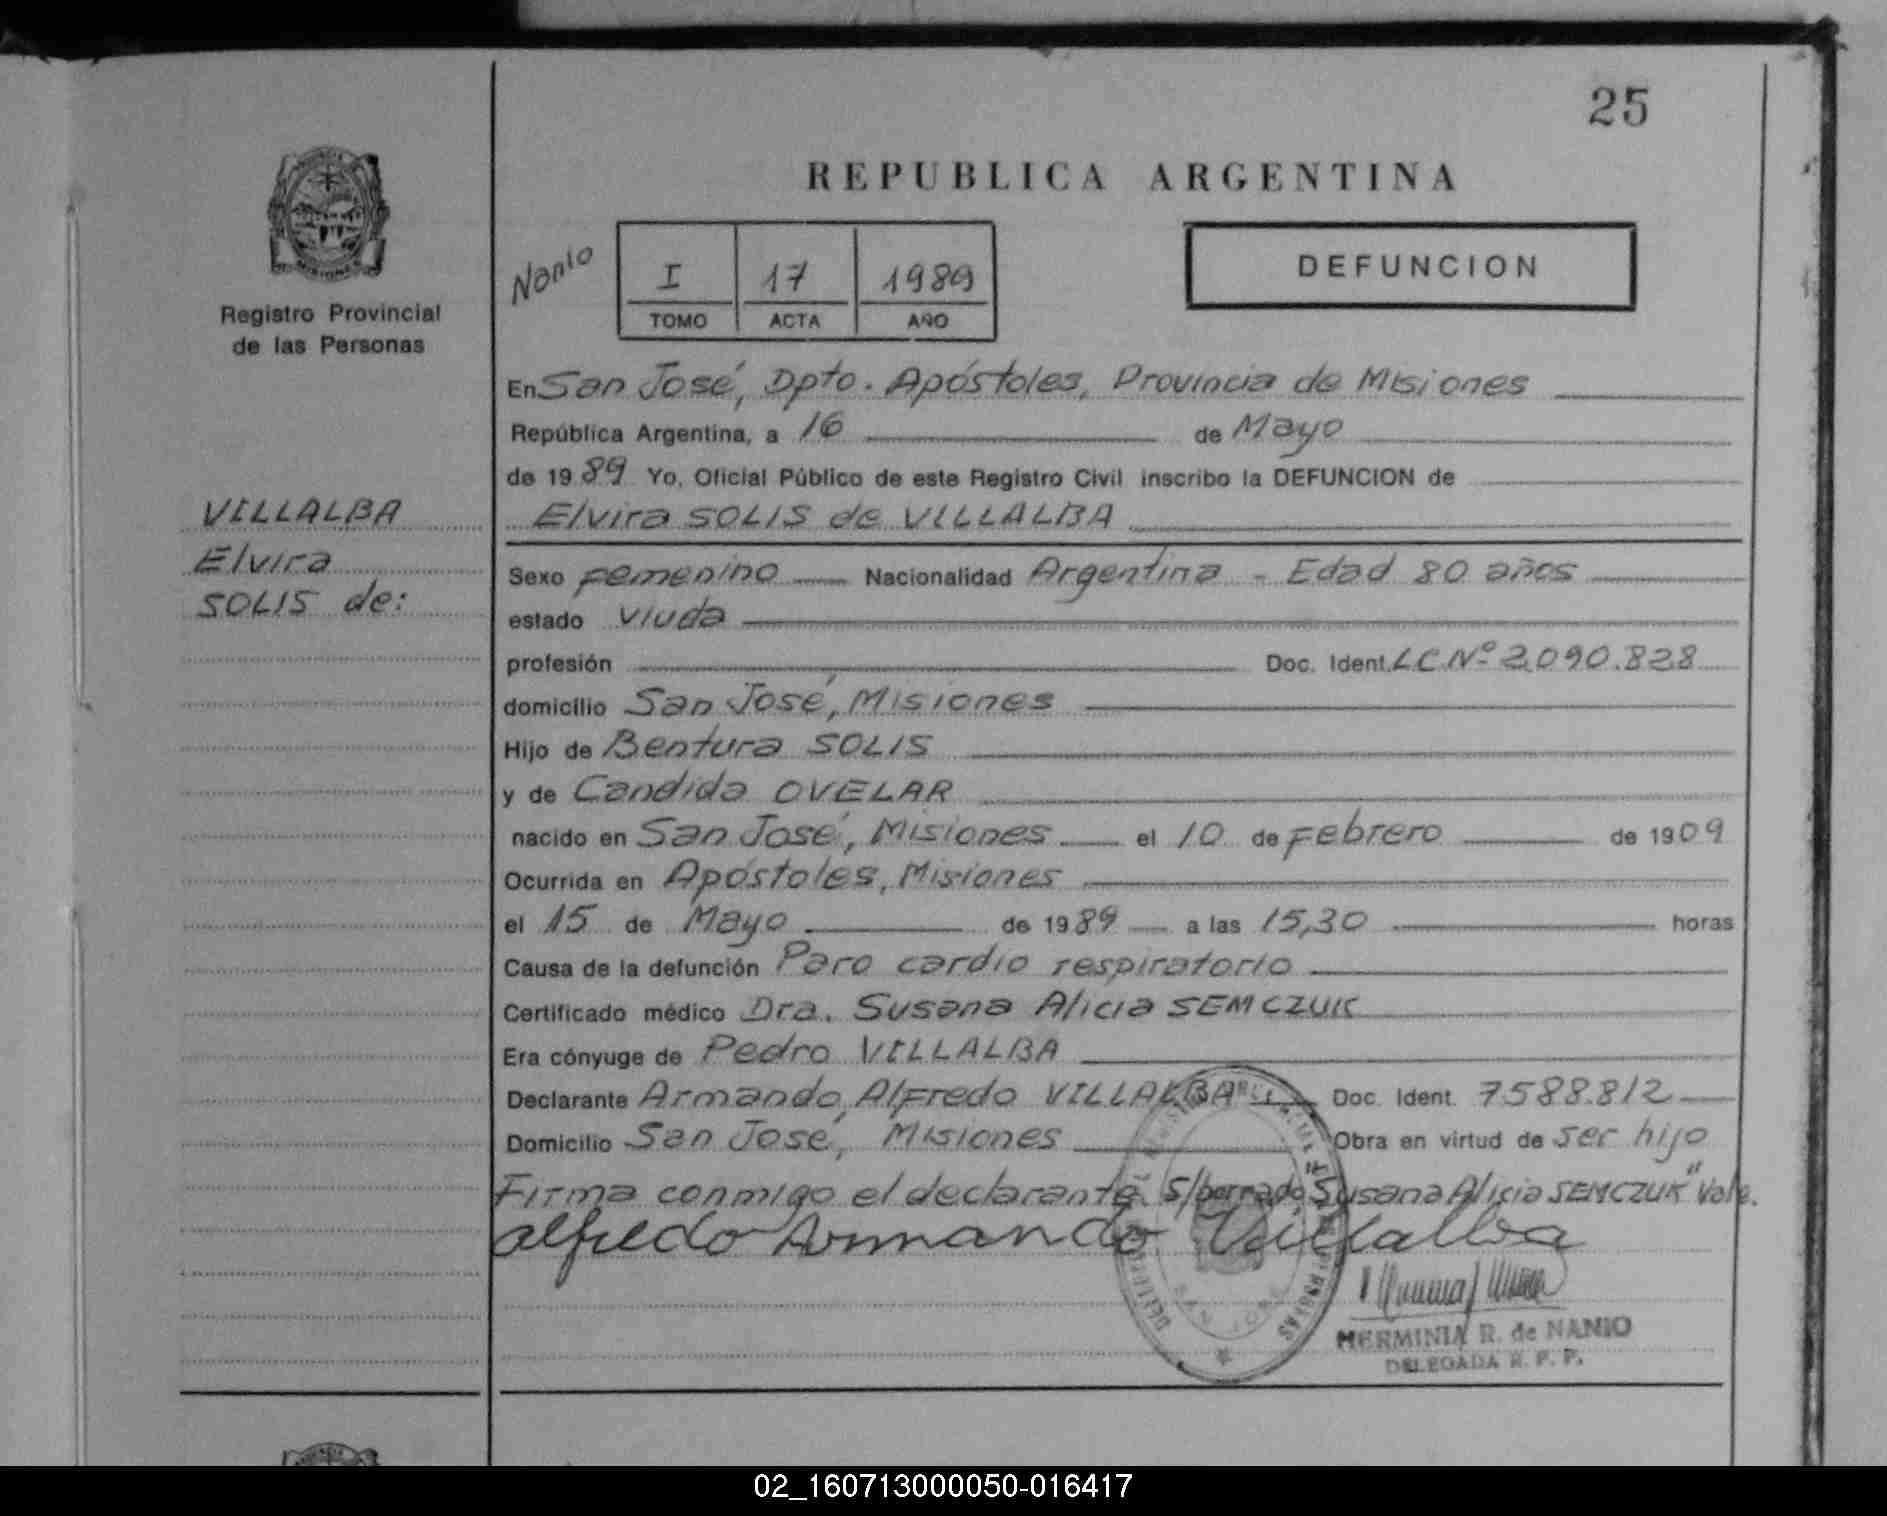 25
REPUBLICA ARGENTINA
Registro Provincial
de las Personas
Nanio
I 17 1989
TOMO ACTA AÑO
DEFUNCION
VILLALBA
Elvira
SOLIS de:
En San José, Dpto. Apóstoles, Provincia de Misiones
República Argentina, a 16 de Mayo
de 1989 Yo, Oficial Público de este Registro Civil inscribo la DEFUNCION de
Elvira SOLIS de VILLALBA
Sexo Femenino Nacionalidad Argentina - Edad 80 años
estado viuda
profesión Doc. Ident. LC Nº 2.090.828
domicilio San José, Misiones
Hijo de Bentura SOLIS
y de Candida OVELAR
nacido en San José, Misiones el 10 de Febrero de 1909
Ocurrida en Apóstoles, Misiones
el 15 de Mayo de 1989 a las 15,30 horas
Causa de la defunción Paro cardio respiratorio
Certificado médico Dra. Susana Alicia SEMCZUK
Era cónyuge de Pedro VILLALBA
Declarante Armando Alfredo VILLALBA Doc. Ident. 7588.812
Domicilio San José, Misiones Obra en virtud de ser hijo
Firma conmigo el declarante. S/borrado "Susana Alicia SEMCZUK" Vale.
alfredo Armando Villalba
HERMINIA R. de NANIO
DELEGADA R. P. P.
02_160713000050-016417